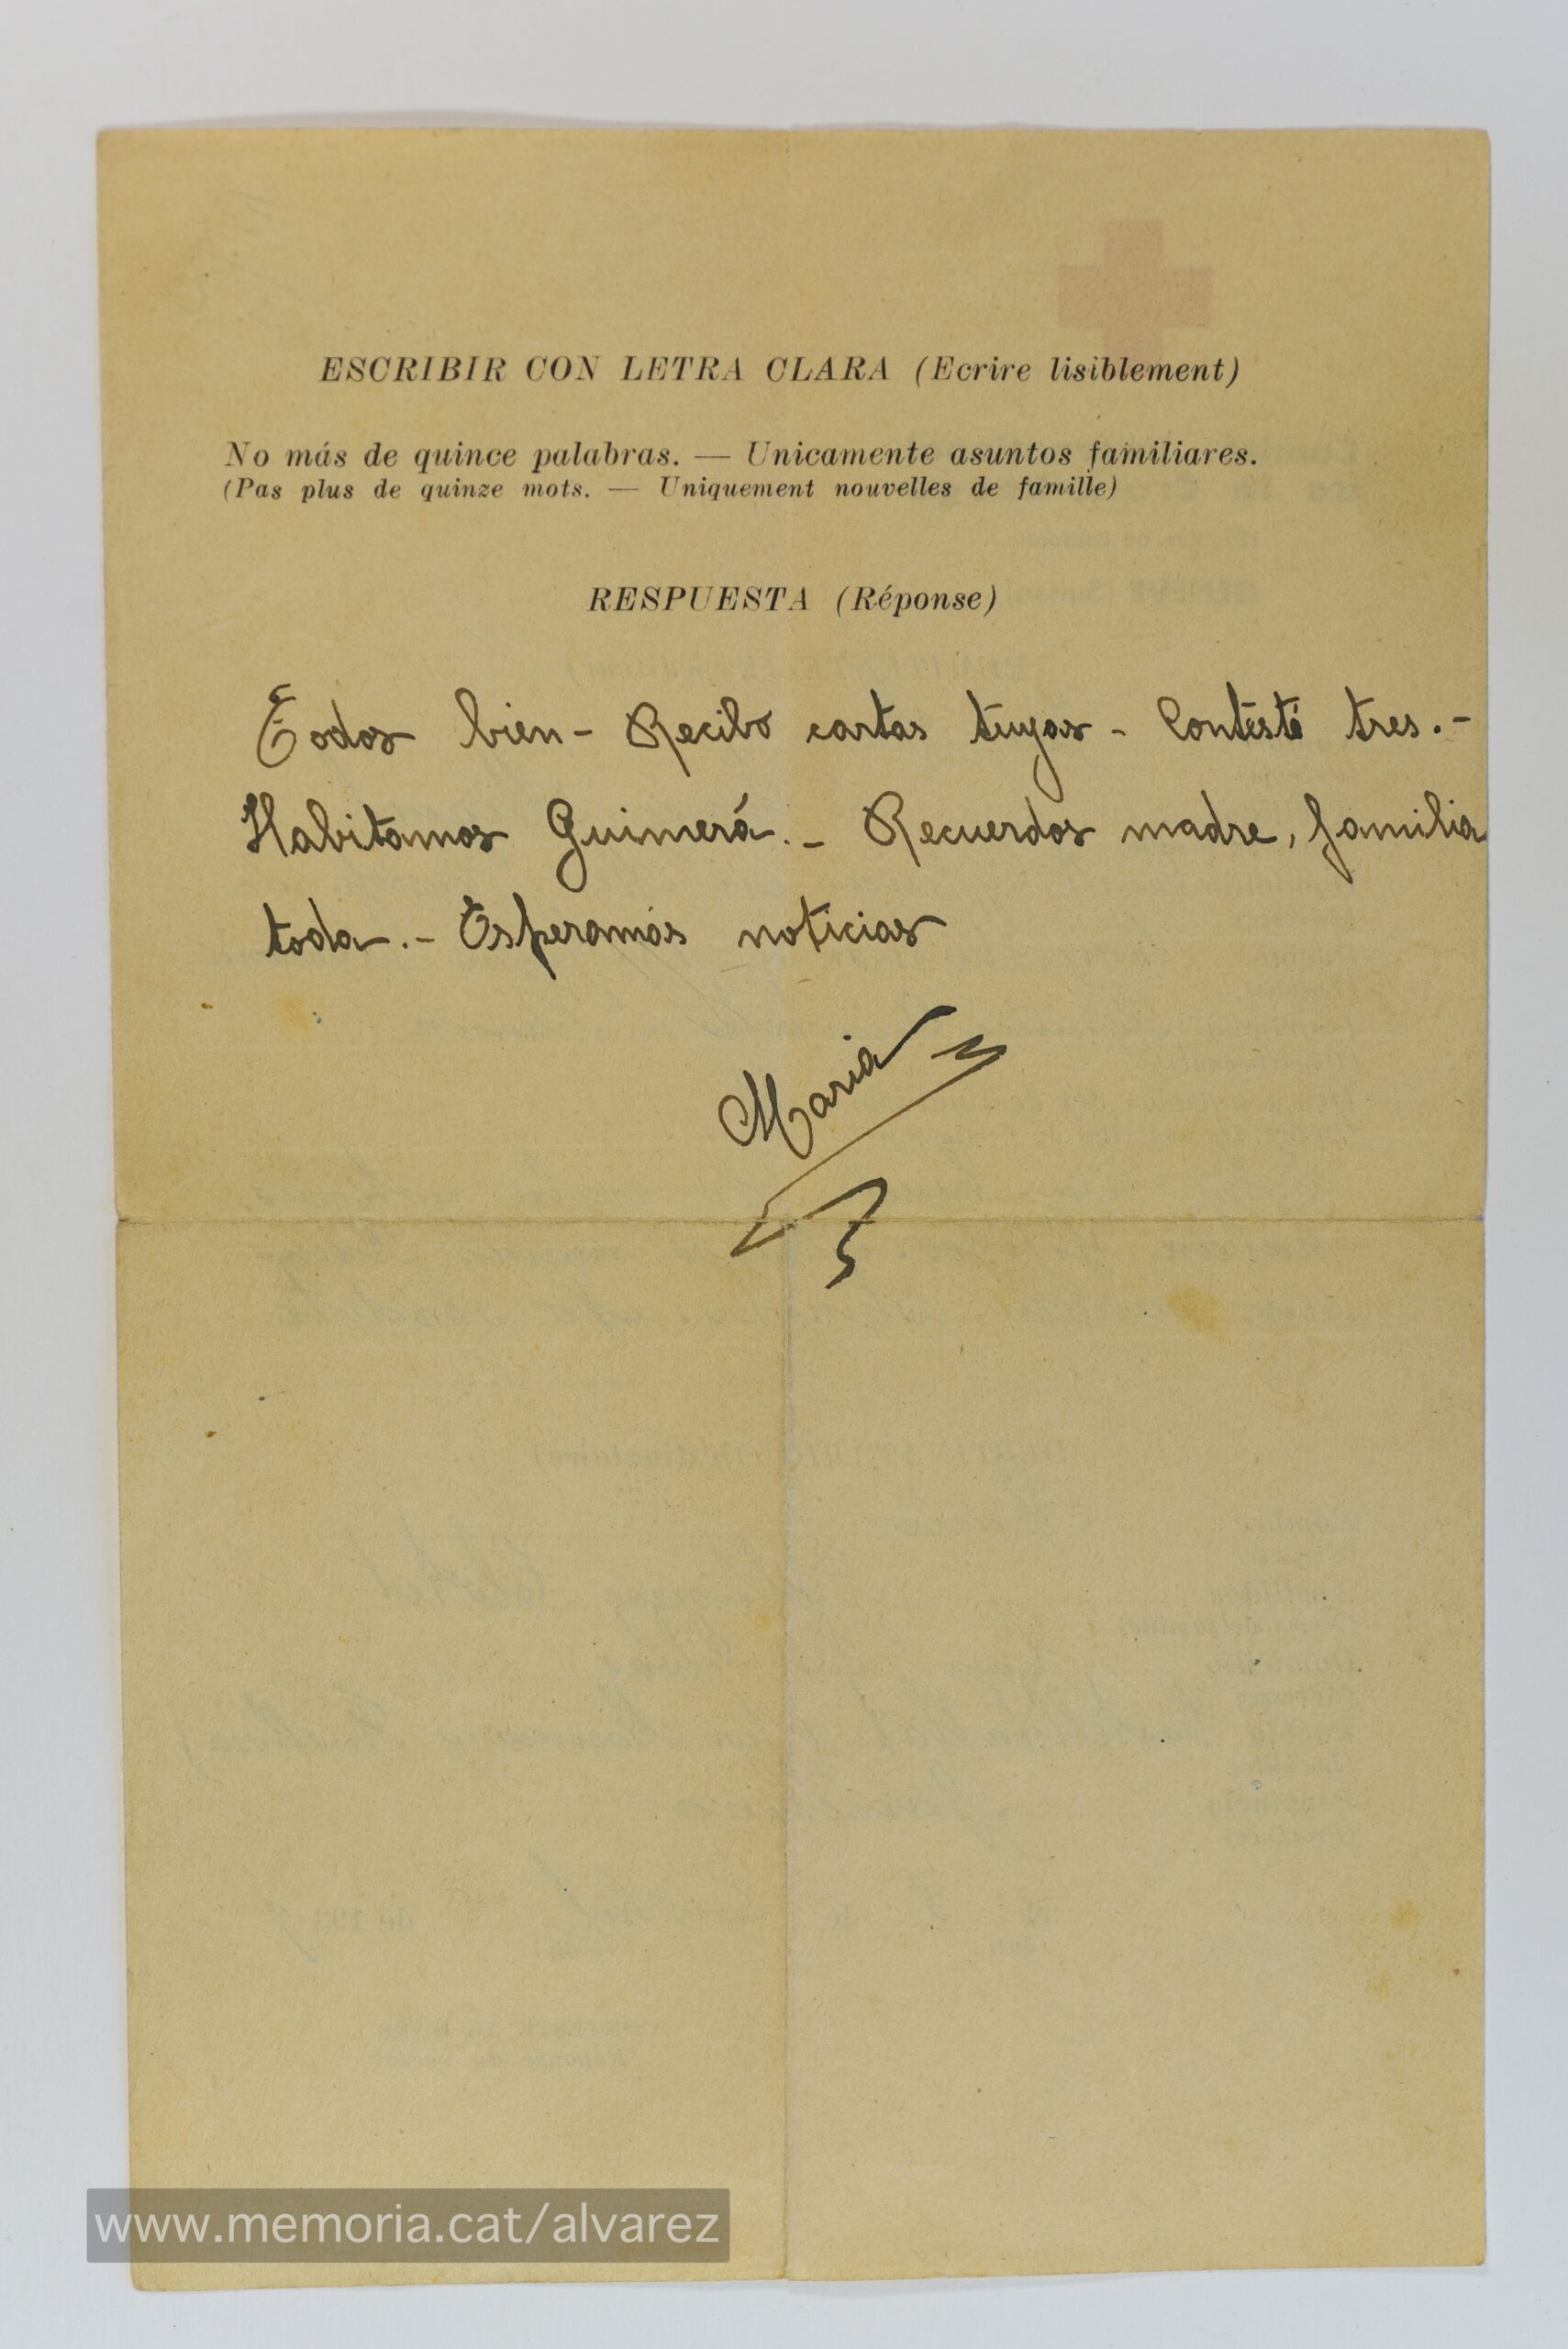 ESCRIBIR CON LETRA CLARA (Ecrire lisiblement)
No más de quince palabras. — Unicamente asuntos familiares.
(Pas plus de quinze mots. — Uniquement nouvelles de famille)
RESPUESTA (Réponse)
Todos bien - Recibo cartas tuyas - Contesté tres. -
Habitamos Guimerá. - Recuerdos madre, familia
toda. - Esperamos noticias
Maria
www.memoria.cat/alvarez